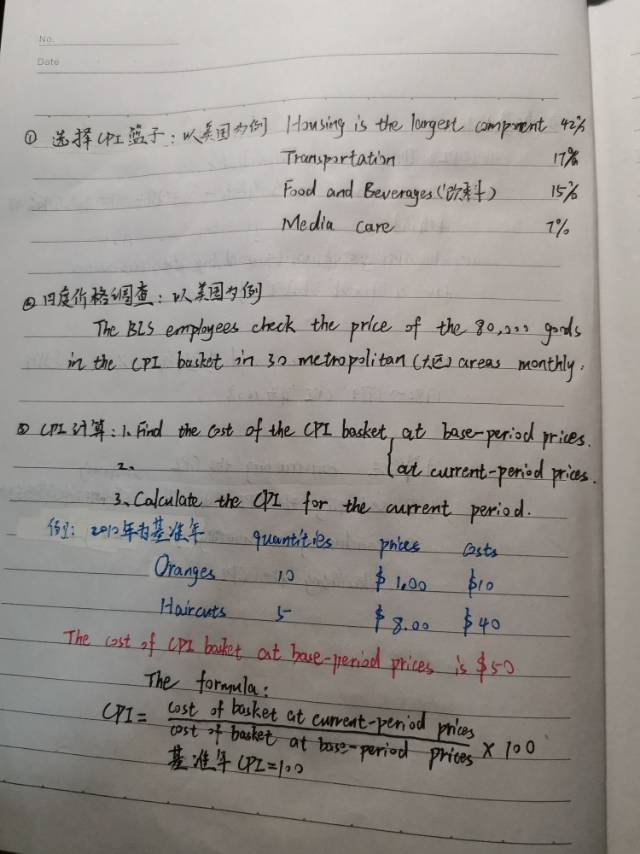 No.
Date
① 选择CPI篮子：以美国为例 Housing is the largest component 42%
Transportation 17%
Food and Beverages(饮料) 15%
Media care 7%
② 月度价格调查：以美国为例
The BLS employees check the price of the 80,000 goods
in the CPI basket in 30 metropolitan(大区) areas monthly.
③ CPI计算：1. Find the cost of the CPI basket { at base-period prices.
2. at current-period prices.
3. Calculate the CPI for the current period.
例：2010年为基准年 quantities prices costs
Oranges 10 $1.00 $10
Haircuts 5 $8.00 $40
The cost of CPI basket at base-period prices is $50
The formula:
CPI = cost of basket at current-period prices
cost of basket at base-period prices × 100
基准年CPI=100